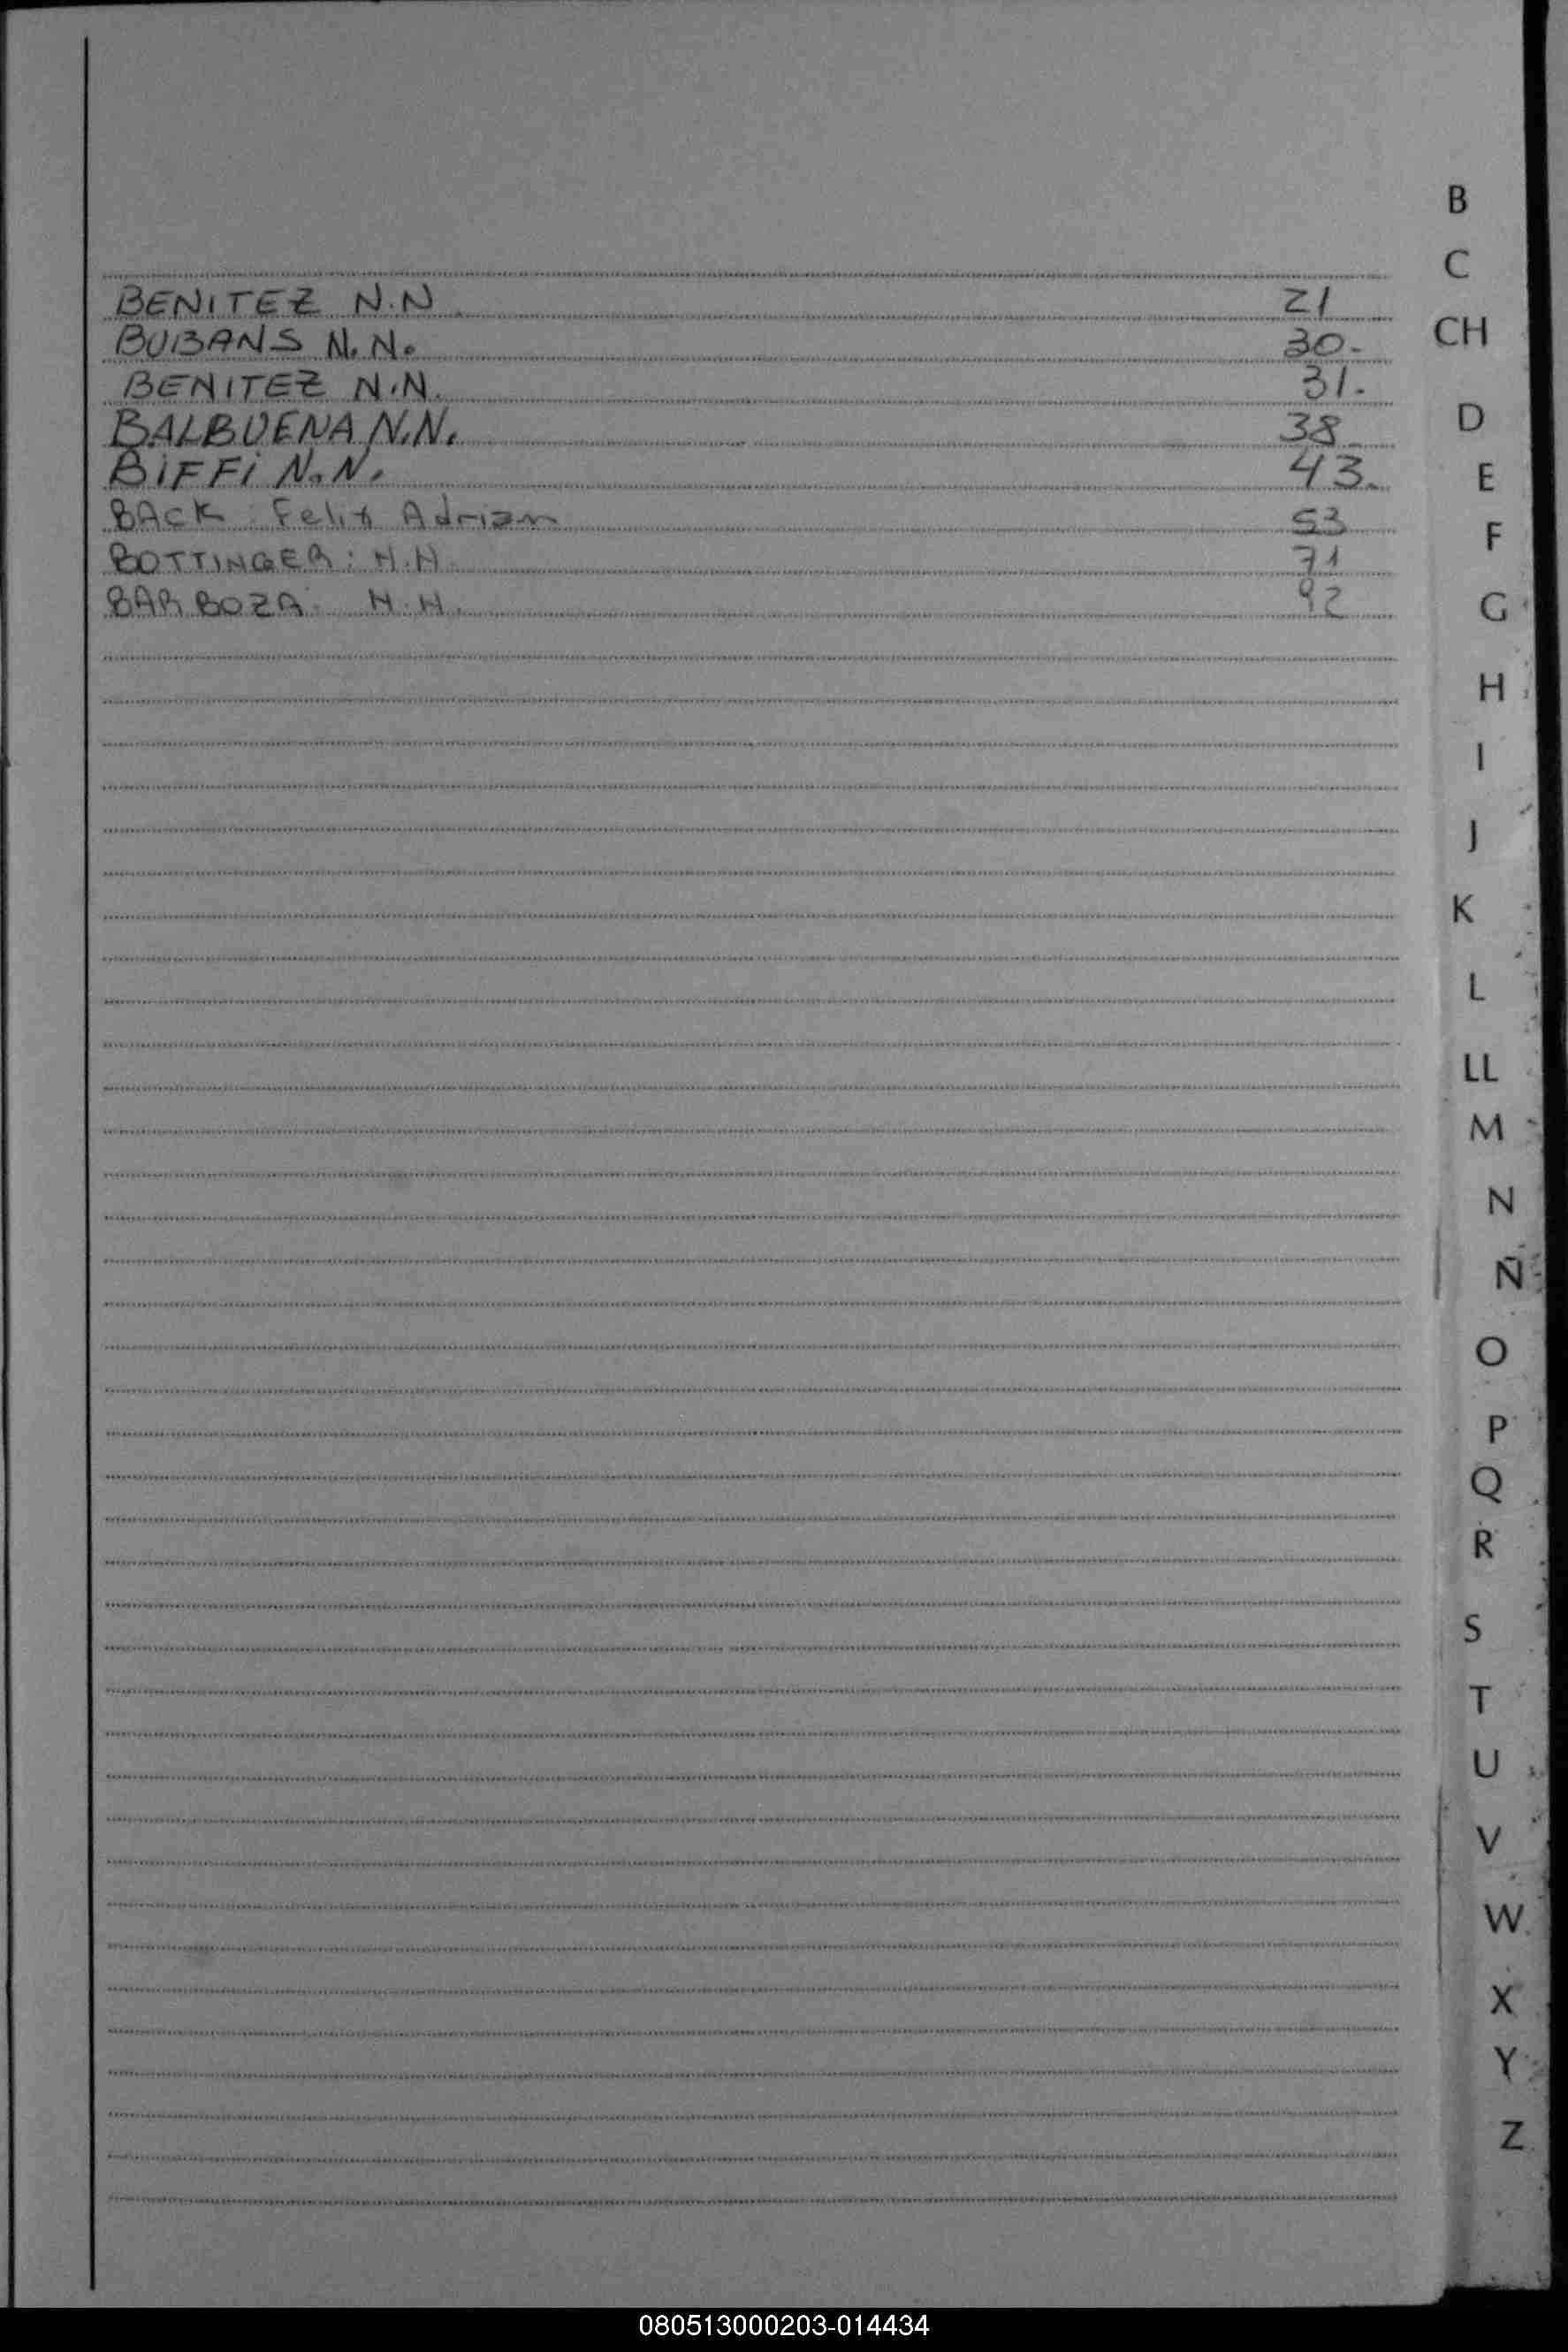 BENITEZ N.N. 21
BUBANS N.N. 30.
BENITEZ N.N. 31.
BALBUENA N.N. 38
BiFFi N.N. 43.
BACK: Felix Adrian 53
BOTTINGER: N.N. 71
BARBOZA: N.N. 92
B
C
CH
D
E
F
G
H
I
J
K
L
LL
M
N
Ñ
O
P
Q
R
S
T
U
V
W
X
Y
Z
080513000203-014434